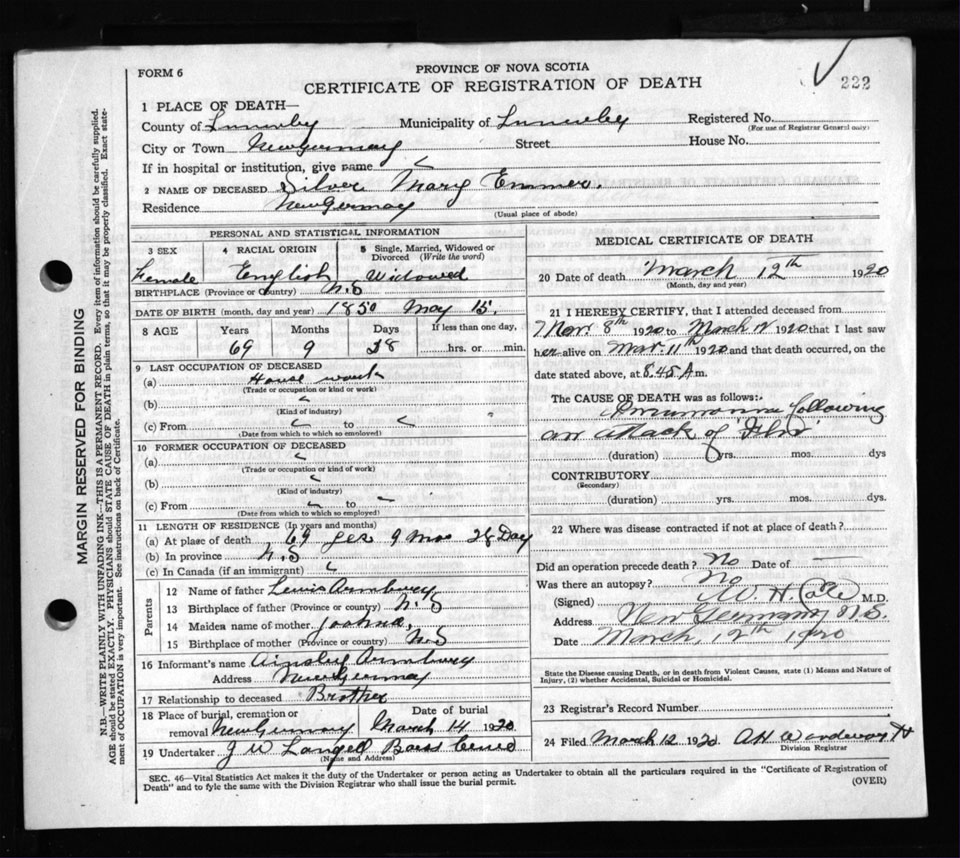 FORM 6
PROVINCE OF NOVA SCOTIA
CERTIFICATE OF REGISTRATION OF DEATH
222
1 PLACE OF DEATH—
County of Lunenby Municipality of Lunenby Registered No.
(For use of Registrar General only)
City or Town New Germay Street House No.
If in hospital or institution, give name
2 NAME OF DECEASED Silver Mary Emmer.
Residence New Germay
(Usual place of abode)
PERSONAL AND STATISTICAL INFORMATION
3 SEX 4 RACIAL ORIGIN 5 Single, Married, Widowed or Divorced (Write the word)
Female English Widowed
BIRTHPLACE (Province or Country) N.S
DATE OF BIRTH (month, day and year) 1850 May 15.
8 AGE Years Months Days If less than one day,
69 9 28 hrs. or min.
9 LAST OCCUPATION OF DECEASED
(a) House work
(Trade or occupation or kind or work)
(b)
(Kind of industry)
(c) From to
(Date from which to which so employed)
10 FORMER OCCUPATION OF DECEASED
(a)
(Trade or occupation or kind of work)
(b)
(Kind of industry)
(c) From to
(Date from which to which so employed)
11 LENGTH OF RESIDENCE (In years and months)
(a) At place of death 69 yes 9 Mos 28 Day
(b) In province N.S
(c) In Canada (if an immigrant)
Parents
12 Name of father Lewis Armbury
13 Birthplace of father (Province or country) N.S
14 Maiden name of mother
15 Birthplace of mother (Province or country) N.S
16 Informant's name Ainsley Armbury
Address New Germay
17 Relationship to deceased Brother
18 Place of burial, cremation or removal New Germay Date of burial March 14 1920
19 Undertaker J W Langell
(Name and Address)
MEDICAL CERTIFICATE OF DEATH
20 Date of death March 12th 1920
(Month, day and year)
21 I HEREBY CERTIFY, that I attended deceased from
Mar. 8th 1920 to March 11 1920 that I last saw
her alive on Mar. 11th 1920 and that death occurred, on the
date stated above, at 8.45 A.m.
The CAUSE OF DEATH was as follows:
Pneumonia following
an attack of 'Flu'
(duration) yrs. mos. dys
CONTRIBUTORY
(Secondary)
(duration) yrs. mos. dys.
22 Where was disease contracted if not at place of death?
Did an operation precede death? No Date of —
Was there an autopsy? No
(Signed) W. H. Cole M.D.
Address New Germany N.S.
Date March, 12th 1920
State the Disease causing Death, or in death from Violent Causes, state (1) Means and Nature of Injury, (2) whether Accidental, Suicidal or Homicidal.
23 Registrar's Record Number
24 Filed March 12 1920.
Division Registrar
SEC. 46—Vital Statistics Act makes it the duty of the Undertaker or person acting as Undertaker to obtain all the particulars required in the "Certificate of Registration of
Death" and to fyle the same with the Division Registrar who shall issue the burial permit.
(OVER)
MARGIN RESERVED FOR BINDING
N.B.—WRITE PLAINLY WITH UNFADING INK—THIS IS A PERMANENT RECORD. Every item of information should be carefully supplied.
AGE should be stated EXACTLY. PHYSICIANS should STATE CAUSE OF DEATH in plain terms, so that it may be properly classified. Exact state-
ment of OCCUPATION is very important. See instructions on back of Certificate.